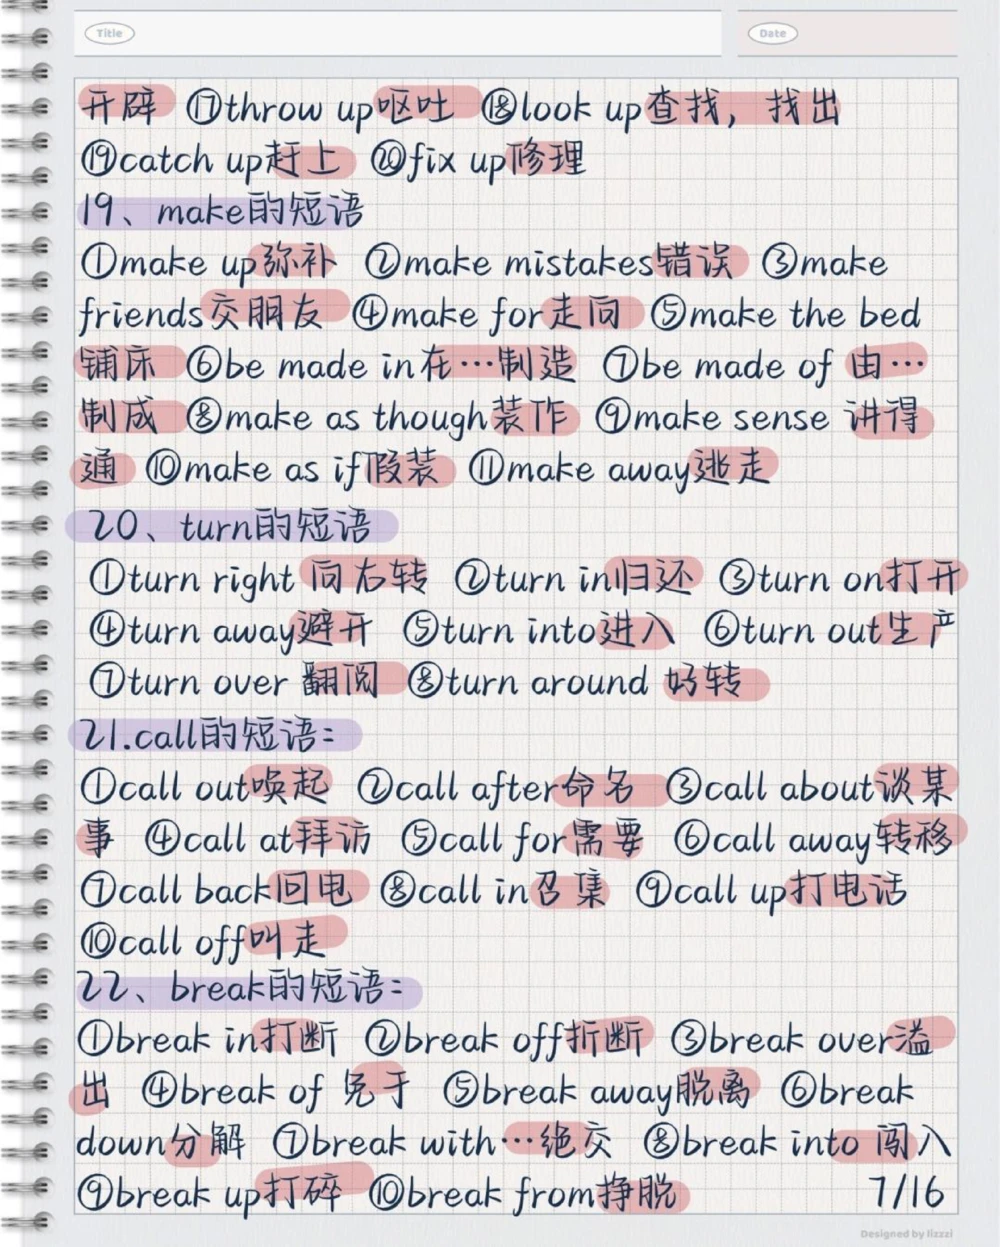 Title Date
开辟 ⑰throw up呕吐 ⑱look up查找，找出
⑲catch up赶上 ⑳fix up修理
19、make的短语
①make up弥补 ②make mistakes错误 ③make
friends交朋友 ④make for走向 ⑤make the bed
铺床 ⑥be made in在…制造 ⑦be made of 由…
制成 ⑧make as though装作 ⑨make sense 讲得
通 ⑩make as if假装 ⑪make away逃走
20、turn的短语
①turn right 向右转 ②turn in归还 ③turn on打开
④turn away避开 ⑤turn into进入 ⑥turn out生产
⑦turn over 翻阅 ⑧turn around 好转
21.call的短语:
①call out唤起 ②call after命名 ③call about谈某
事 ④call at拜访 ⑤call for需要 ⑥call away转移
⑦call back回电 ⑧call in召集 ⑨call up打电话
⑩call off叫走
22、break的短语:
①break in打断 ②break off折断 ③break over溢
出 ④break of 免于 ⑤break away脱离 ⑥break
down分解 ⑦break with…绝交 ⑧break into 闯入
⑨break up打碎 ⑩break from挣脱 7/16
Designed by lizzzi